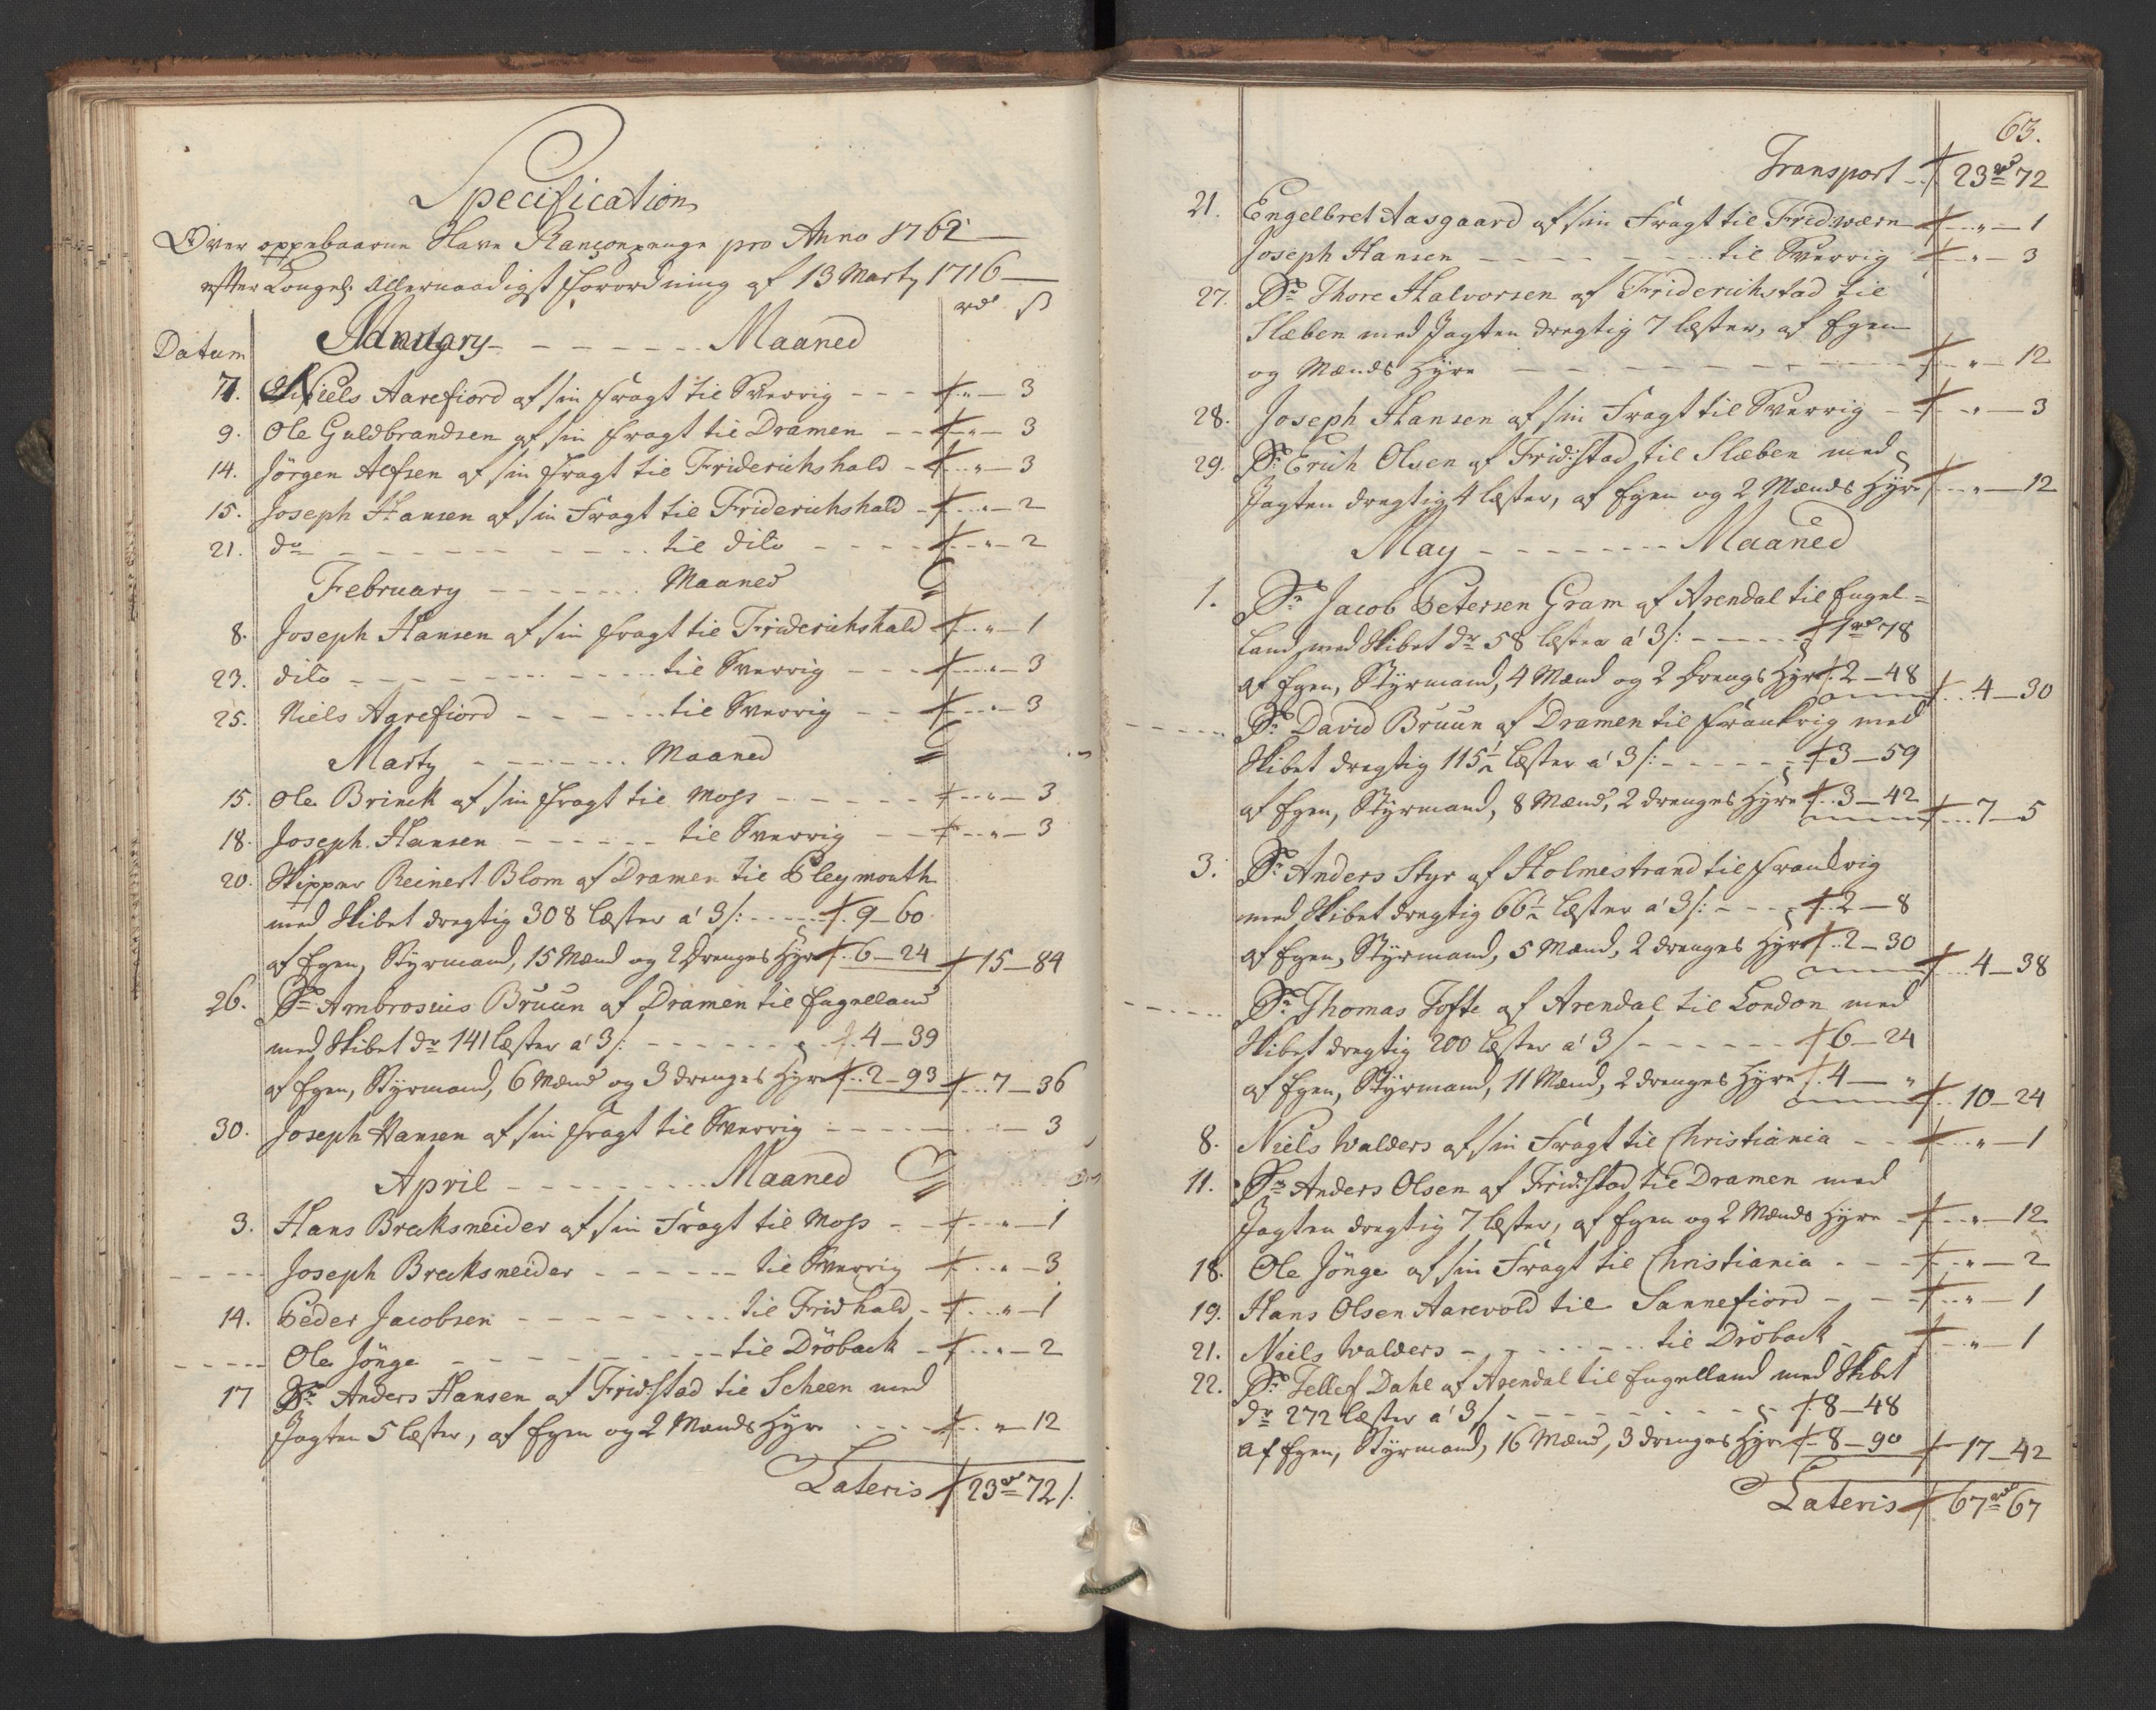 Specification
Over oppebaarne Slave Rançonpenge pro Anno 1762
efter Kongel: Allernaadigst Forordning af 13 Marty 1716
rdr ß
Datum January - - - - - - Maaned
7. Niels Aarefiord af sin Fragt til Sverrig - - - " - 3
9. Ole Guldbrandsen af sin Fragt til Dramen - - " - 3
14. Jörgen Alfsen af sin Fragt til Friderichshald - " - 3
15. Joseph Hansen af sin Fragt til Friderichshald - " - 2
21. do - - - - - - til dito - - - - " - 2
February - - - - - - Maaned
8. Joseph Hansen af sin Fragt til Friderichshald " - 1
23. dito - - - - - - til Sverrig - - - " - 3
25. Niels Aarefiord - - - - - til Sverrig - - " - 3
Marty - - - - - - Maaned
15. Ole Brinck af sin Fragt til Moss - - - - - " - 3
18. Joseph Hansen - - - - - - til Sverrig - - " - 3
20. Skipper Reinert Blom af Dramen til Pleymouth
med Skibet drægtig 308 Læster a' 3 /: - - - - 9 - 60
af Egen, Styrmand, 15 Mænd og 2 Drenges Hyre 6 - 24 15 - 84
26. Sr Ambrosius Bruun af Dramen til Engelland
med Skibet dr 141 Læster a' 3 /: - - - - - - 4 - 39
af Egen, Styrmand, 6 Mænd og 3 drenges Hyre 2 - 93 7 - 36
30. Joseph Hansen af sin Fragt til Sverrig - - - - - 3
April - - - - - - Maaned
3. Hans Brecksneider af sin Fragt til Moss - - " - 1
- - - - Joseph Brecksneider - - - - - - til Sverrig " - 3
14. Peder Jacobsen - - - - - - til Fridhald - " - 1
- - - - Ole Jönge - - - - - - - til Dröback - " - 2
17 Sr Anders Hansen af Frid:stad til Scheen med
Jagten 5 Læster, af Egen og 2 Mænds Hyre - - - - " - 12
Lateris 23 rdr 72 /.
63.
Transport - 23 rdr 72
21. Engelbret Aasgaard af sin Fragt til Fridværn " - 1
Joseph Hansen - - - - - - til Sverrig " - 3
27. Sr Thore Halvorsen af Friderichstad til
Slæben med Jagten drægtig 7 Læster, af Egen
og Mænds Hyre - - - - - - - - - " - 12
28. Joseph Hansen af sin Fragt til Sverrig - " - 3
29. Sr Erich Olsen af Frid:stad til Slæben med
Jagten drægtig 4 Læster, af Egen og 2 Mænds Hyre " - 12
May - - - - - - - Maaned
1. Sr Jacob Petersen Gram af Arendal til Engel=
land med Skibet dr 58 Læster a' 3 /: - - - - - 1 rdr 78
af Egen, Styrmand, 4 Mænd og 2 Drengs Hyre 2 - 48 4 - 30
- - - - Sr David Bruun af Dramen til Frankrig med
Skibet drægtig 115½ Læster a' 3 /: - - - - - 3 - 59
af Egen, Styrmand, 8 Mænd, 2 drenges Hyre 3 - 42 7 - 5
3. Sr Anders Styr af Holmestrand til Frankrig
med Skibet drægtig 66½ Læster a' 3 /: - - - 2 - 8
af Egen, Styrmand, 5 Mænd, 2 drenges Hyre 2 - 30 4 - 38
- - - - Sr Thomas Tofte af Arendal til London med
Skibet drægtig 200 Læster a' 3 / - - - - - - 6 - 24
af Egen, Styrmand, 11 Mænd, 2 drenges Hyre 4 - " 10 - 24
8. Niels Walders af sin Fragt til Christiania - - " - 1
11. Sr Anders Olsen af Frid:stad til Dramen med
Jagten drægtig 7 Læster, af Egen og 2 Mænds Hyre - " - 12
18. Ole Jönge af sin Fragt til Christiania - - - " - 2
19. Hans Olsen Aarevold til Sannefiord - - - " - 1
21. Niels Walders - - - - - - til Dröback - " - 1
22. Sr Tellef Dahl af Arendal til Engelland med Skibet
dr 272 Læster a' 3 / - - - - - - - - 8 - 48
af Egen, Styrmand, 16 Mænd, 3 drenges Hyre 8 - 90 17 - 42
Lateris 67 rdr 67